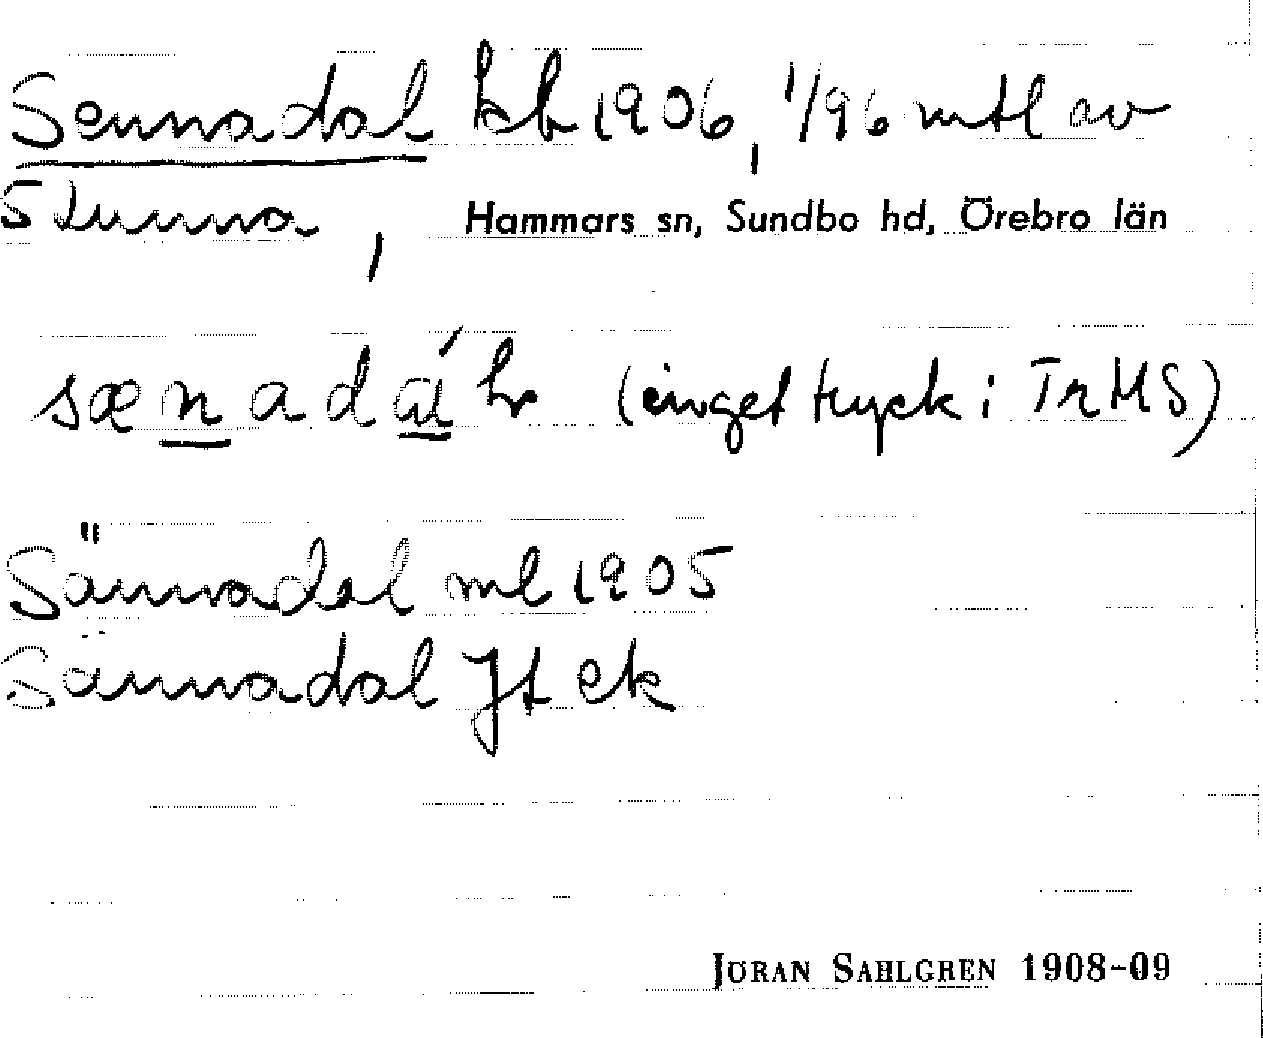 Sennadal kb 1906, 1/96 mtl av
5 Lunna, Hammars sn, Sundbo hd, Örebro län
(inget tryck i TrMS)
Sännadal ml 1905
Sännadal Jt ek
JÖRAN SAHLGREN 1908-09